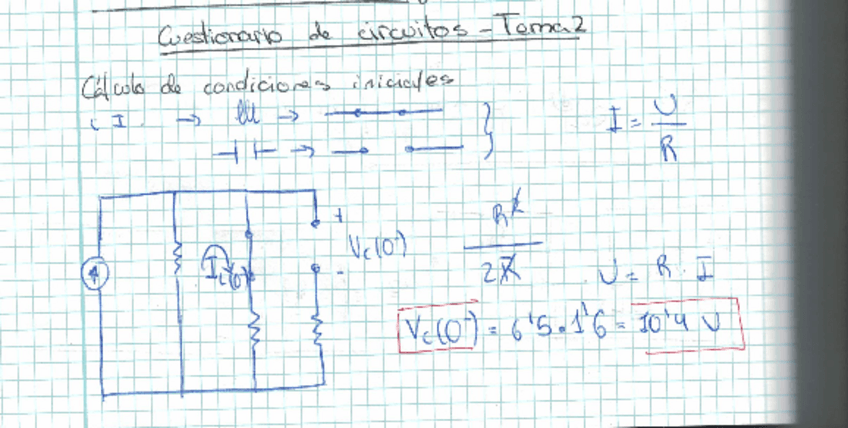 Cuestionario de circuitos - Tema 2
Cálculo de condiciones iniciales
I = U / R
+
Vc(0⁻)
-
IL(0⁻)
R²
2R
U = R · I
Vc(0⁻) = 6'5 · 1'6 = 10'4 V